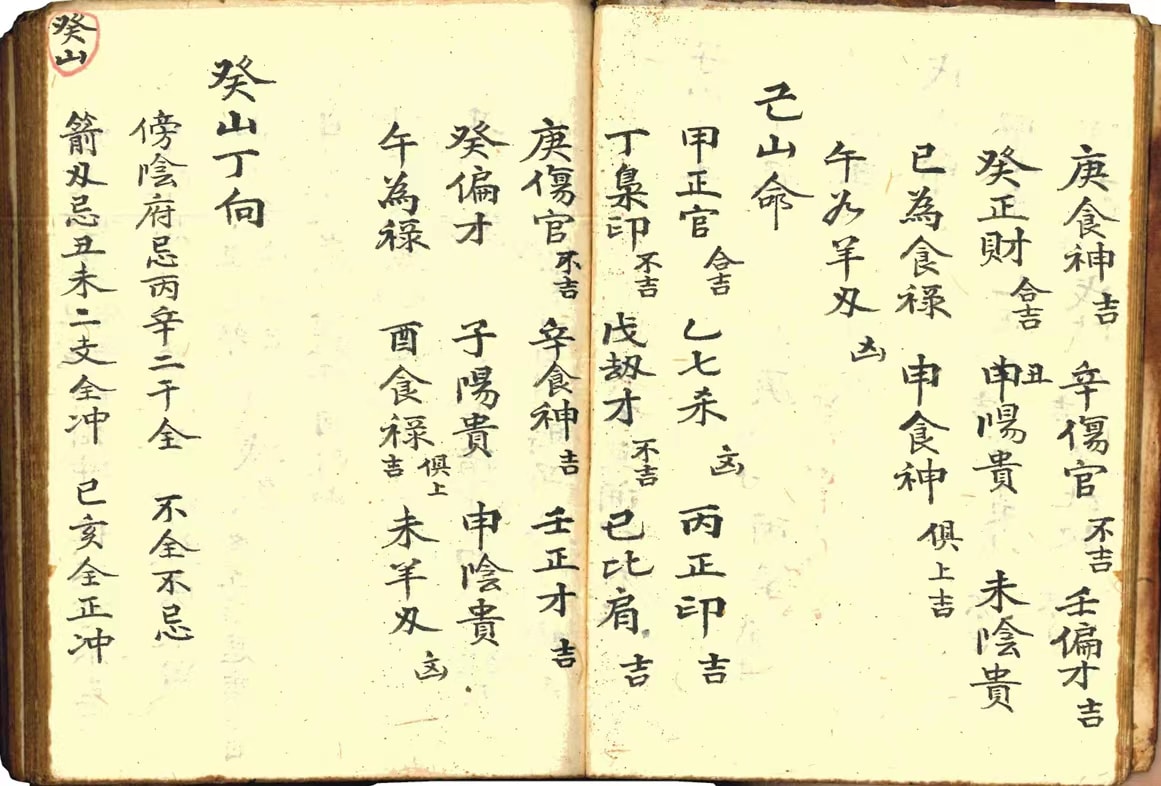 庚食神吉 辛傷官不吉 壬偏才吉
癸正財合吉 丑申陽貴 未陰貴
巳為食祿 申食神俱上吉
午為羊刃凶
己山命
甲正官合吉 乙七杀凶 丙正印吉
丁梟印不吉 戊刼才不吉 己比肩吉
庚傷官不吉 辛食神吉 壬正才吉
癸偏才 子陽貴 申陰貴
午為祿 酉食祿吉俱上 未羊刃凶
癸山丁向
傍陰府忌丙辛二干全 不全不忌
箭刃忌丑未二支全冲 巳亥全正冲
癸山